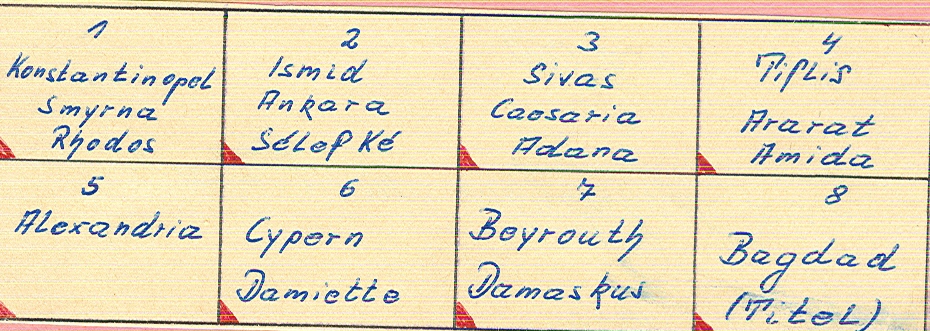 1
Konstantinopel
Smyrna
Rhodos
2
Ismid
Ankara
Sélefké
3
Sivas
Caesaria
Adana
4
Tiflis
Ararat
Amida
5
Alexandria
6
Cypern
Damiette
7
Beyrouth
Damaskus
8
Bagdad
(Titel)